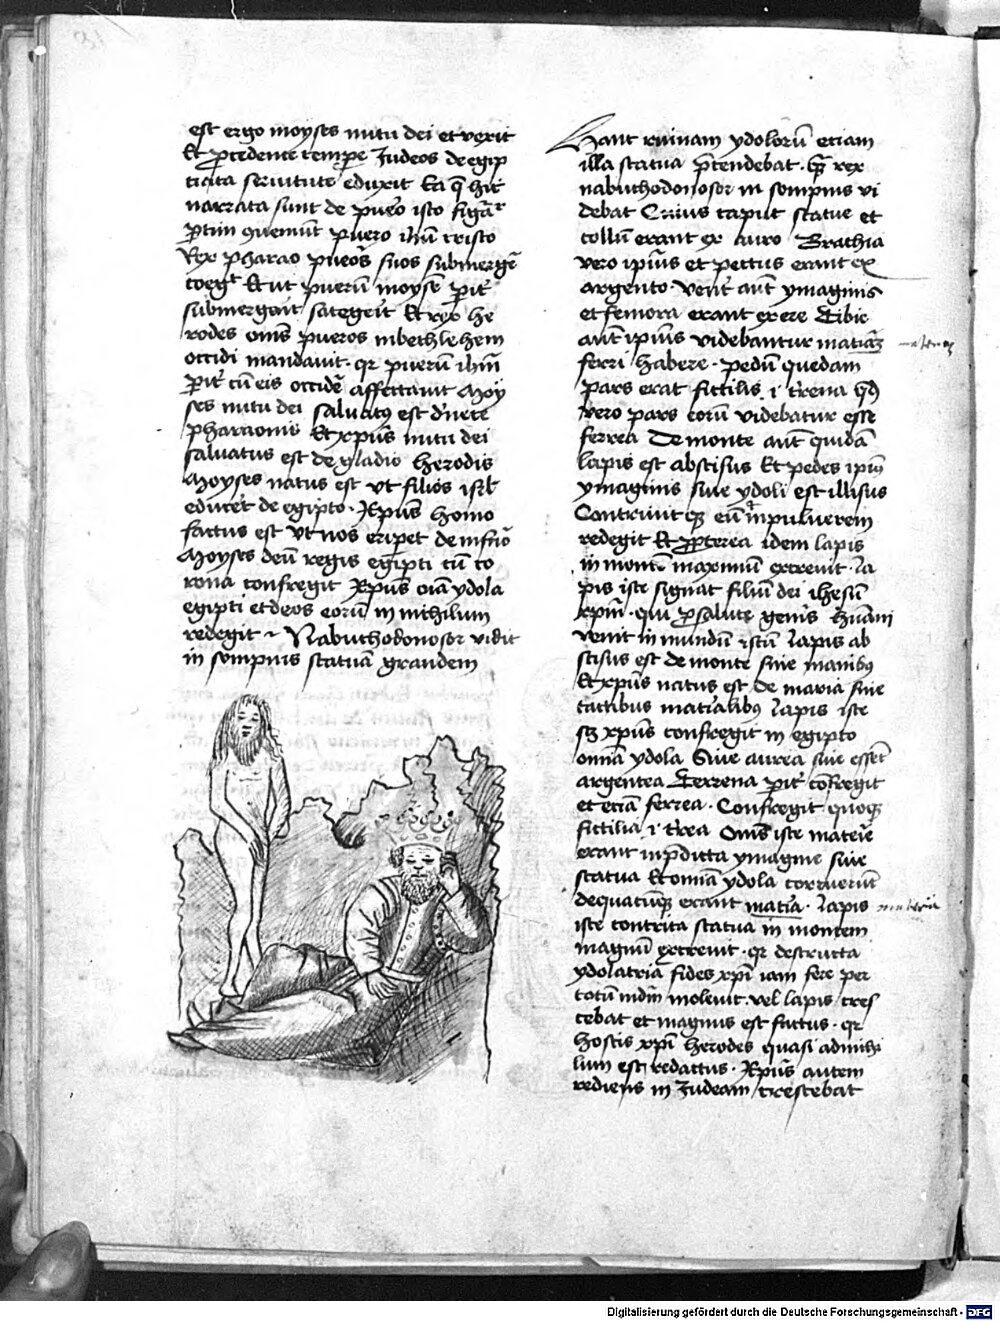 est ergo moyses nutu dei et vexit
Et p̄cedente tempore Judeos de egip
ticata seruitute eduxit Ea q̄ hic
narrata sunt de puero isto figār
p̄tim 9uemūt puero ihū cristo
Rex pharao pueōs suos submergē
coegᵗ Et ut puerū moysē pīt
submergeūt sategeīt Et rex he
rodes omēs pueros in bethlehem
occidi mandauit · qr puerū ihm̄
pīt cū eis occidē affectauit Moy
ses nutu dei saluatꝰ est d'nece
pharaonis Et xpūs nutu dei
saluatus est de gladio herodis
Moyses natus est vt filios isrl̄
educēt de egipto · Xpūs homo
factus est vt nos eripet de infnō
Moyses deū regis egipti cū co
rona confregit Xpūs oīa ydola
egipti et deos eorū in nichilum
redegit ~ Nabuchodonosor vidit
in sompnis statuā grandem
Hanc ruinam ydolorū eciam
illa statua p̄tendebat · Quā rex
nabuchodonosor in sompnis vi
debat Cuius caput statue et
collū erant ex auro Brachia
vero ipīus et pectus erant ex
argento · ventˀ aūt ymaginis
et femora erant ex ere Tibie
aūt ipīus videbantur matiā
ferri habere · pedū quedam
pars erat fictilis i trena q̄d
vero pars eorū videbatur esse
ferrea De monte aūt quidā
lapis est abscisus Et pedes ipīꝰ
ymaginis siue ydoli est illisus
Contriuitqꝫ eū in puluerem
redegit Et p̄pterea idem lapis
in montē maximū excreuit · la
pis iste signāt filiū dei ihesū
xpm̄ · qui p salute genīs hūani
venit in mundū istū Lapis ab
scisus est de monte sine manibꝰ
Et xpūs natus est de maria sine
tactibus maritalibꝰ Lapis iste
sꝫ xpūs confregit in egipto
omnā ydola Siue aurea siue essēt
argentea Terrena pīt cōfregit
et eciā ferrea · Confregit quoqꝫ
fictilia i trea Omēs iste materie
erant in p̄dicta ymagine siue
statua Et omīa ydola corruerūt
de quacūqꝫ erant matīa · Lapis
iste contrita statua in montem
magnū excreuit · qr destructa
ydolatria fides xp̄i iam fere per
totū mdm̄ inoleuit · vel lapis cres
cebat et magnus est factus · qr
hostis xp̄i herodes quasi ad nichi
lum est redactus · Xpūs autem
rediens in Judeam crescebat
materia
Digitalisierung gefördert durch die Deutsche Forschungsgemeinschaft - DFG